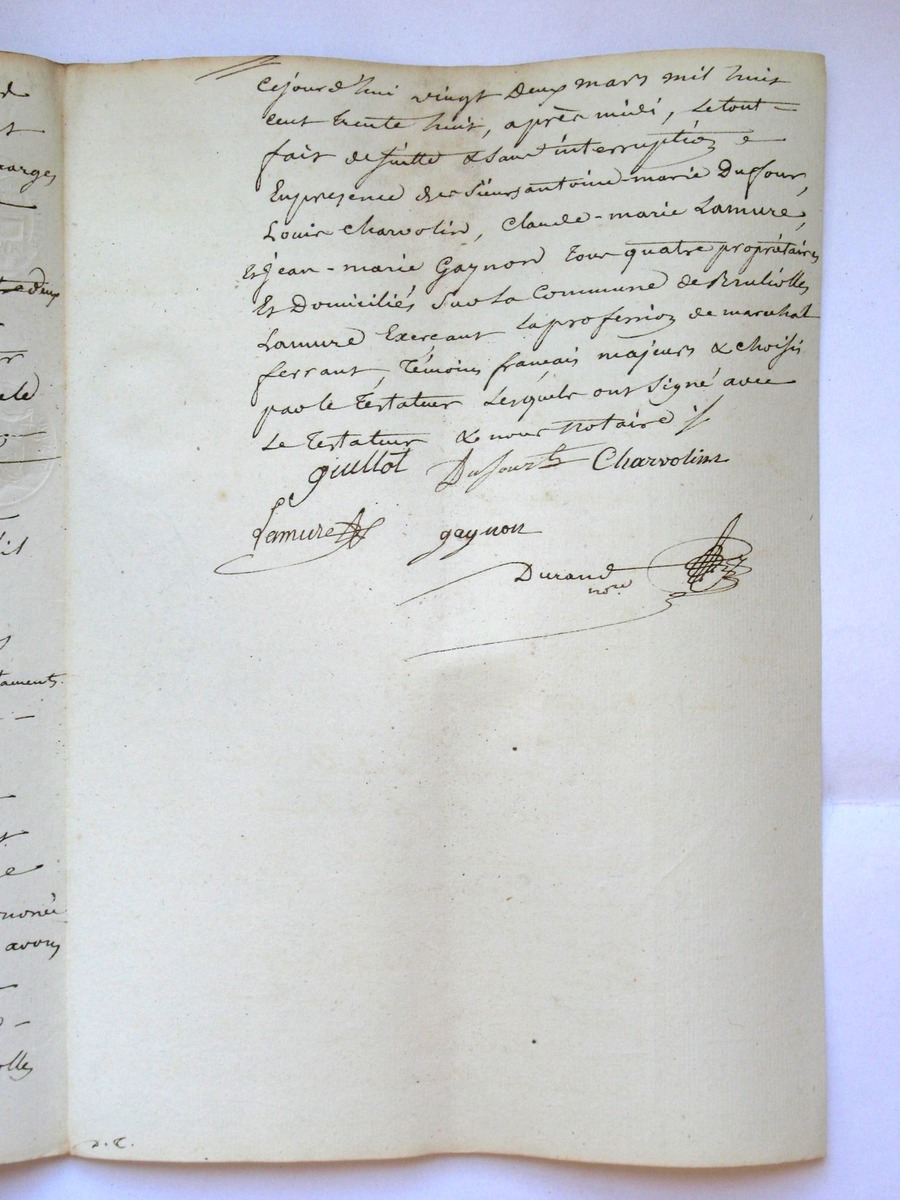 cejourd'hui vingt Deux mars mil huit
cent trente huit, après midi, Le tout
fait de suitte & sans interruption &
En presence des Sieurs antoine-marie Dussour,
Louis Charvolin, Claude-marie Lamure,
Et jean-marie Gaynon tous quatre propriétaires
Et Domiciliés Sur La Commune de Brulioles
Lamure Exerçant La profession de marechal
ferrant, Témoins francais majeurs & choisis
par le Testateur Lesquels ont Signé avec
Le Testateur & nous Notaire
guillot Charvolin
Lamure gaynon
Durand
nore
arges
deux
ele
il
taments
nonée
avons
olles
D. T.